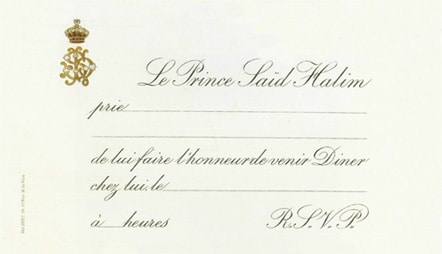 Le Prince Saïd Halim
prie
de lui faire l'honneur de venir Dîner
chez lui, le
à heures R.S.V.P.